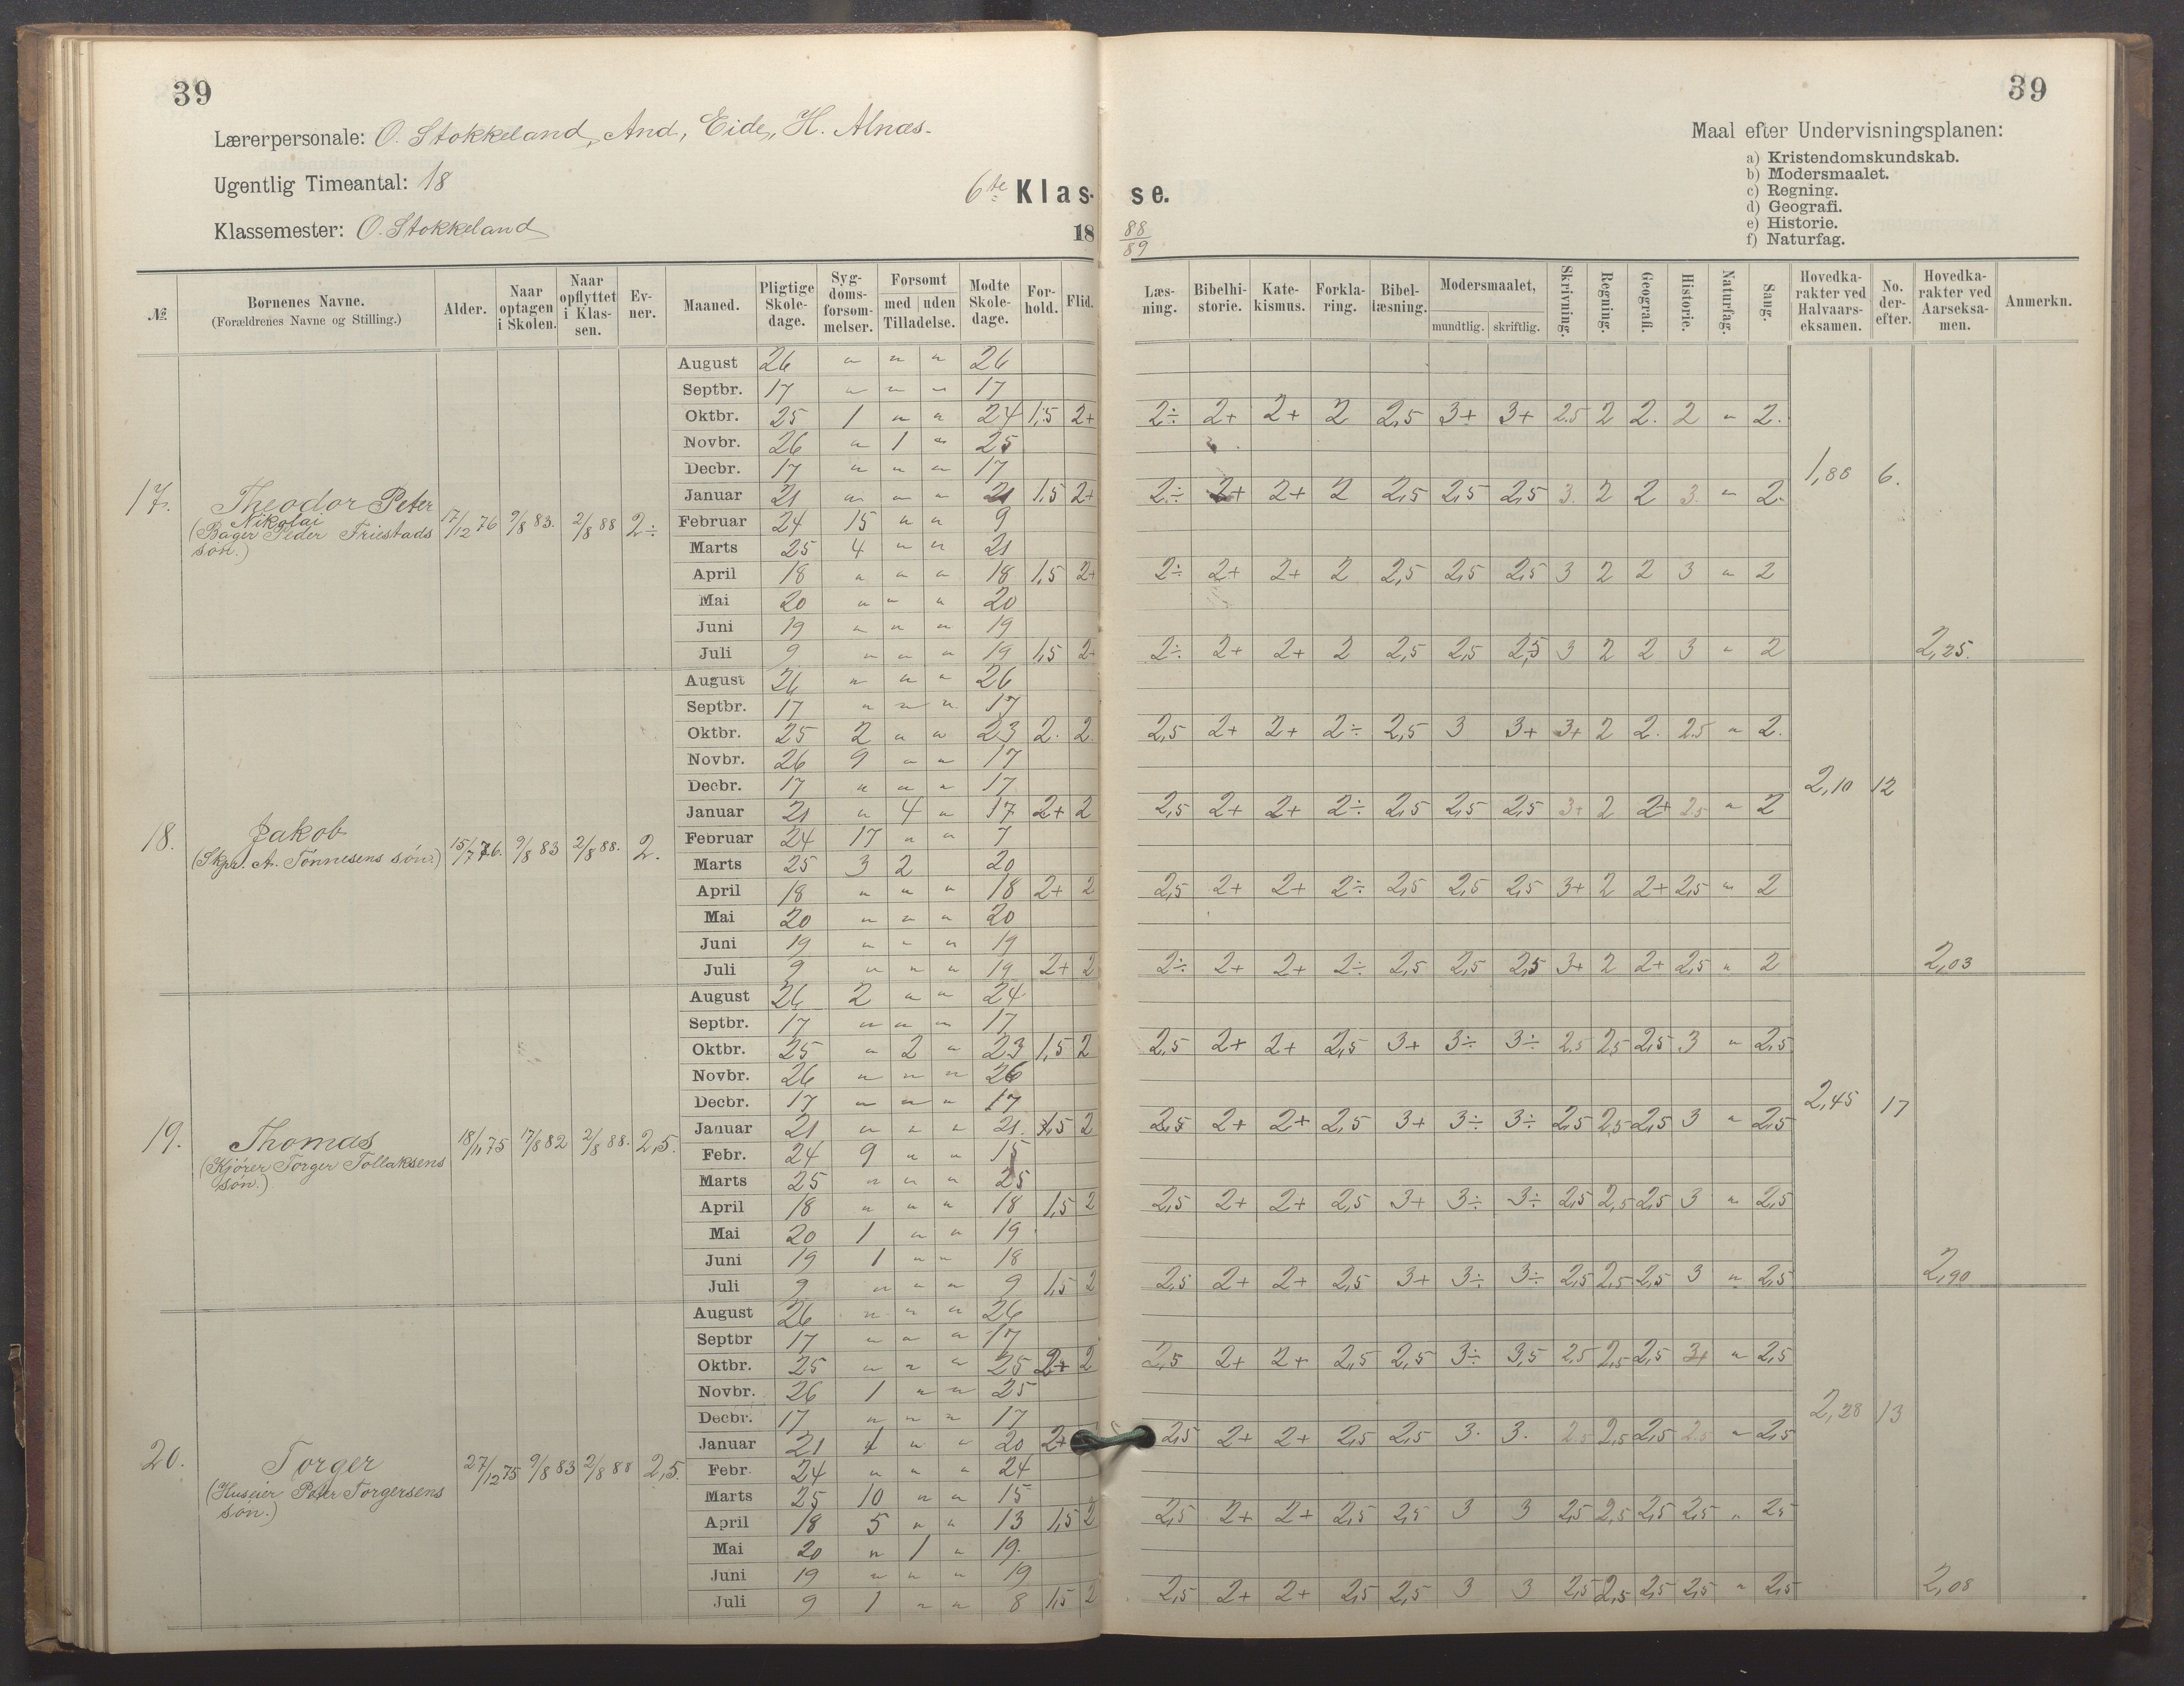 39
39
Lærerpersonale: O. Stokkeland, And, Eide, H. Alnæs.
Ugentlig Timeantal: 18
Klassemester: O. Stokkeland
6te Klas- se.
18 88/89
Maal efter Undervisningsplanen:
a) Kristendomskundskab.
b) Modersmaalet.
c) Regning.
d) Geografi.
e) Historie.
f) Naturfag.
№ | Børnenes Navne. (Forældrenes Navne og Stilling.) | Alder. | Naar optagen i Skolen. | Naar opflyttet i Klassen. | Evner. | Maaned. | Pligtige Skoledage. | Sygdomsforsømmelser. | Forsømt med | uden Tilladelse. | Mødte Skoledage. | Forhold. | Flid. | Læsning. | Bibelhistorie. | Katekismus. | Forklaring. | Bibellæsning. | Modersmaalet, mundtlig. | skriftlig. | Skrivning. | Regning. | Geografi. | Historie. | Naturfag. | Sang. | Hovedkarakter ved Halvaarseksamen. | No. derefter. | Hovedkarakter ved Aarseksamen. | Anmerkn.
17. Theodor Peter Nikolai
(Bager Peder Friestads søn.)
17/12 76 9/8 83. 2/8 88 2÷
August 26 " " " 26
Septbr. 17 " " " 17
Oktbr. 25 1 " " 24 1,5 2+ 2÷ 2+ 2+ 2 2,5 3+ 3+ 2.5 2 2. 2 " 2.
Novbr. 26 " 1 " 25
Decbr. 17 " " " 17
1,88 6.
Januar 21 " " " 21 1,5 2+ 2÷ 2+ 2+ 2 2,5 2,5 2,5 3. 2 2 3. " 2.
Februar 24 15 " " 9
Marts 25 4 " " 21
April 18 " " " 18 1,5 2+ 2÷ 2+ 2+ 2 2,5 2,5 2,5 3 2 2 3 " 2
Mai 20 " " " 20
Juni 19 " " " 19
Juli 9 " " " 19 1,5 2+ 2÷ 2+ 2+ 2 2,5 2,5 2,5 3 2 2 3 " 2 2,25.
18. Jakob
(Skpr. A. Tønnesens søn.)
15/7 76. 9/8 83 2/8 88. 2.
August 26 " " " 26
Septbr. 17 " " " 17
Oktbr. 25 2 " " 23 2. 2. 2,5 2+ 2+ 2÷ 2,5 3 3+ 3+ 2 2. 2.5 " 2.
Novbr. 26 9 " " 17
Decbr. 17 " " " 17
2,10 12
Januar 21 " 4 " 17 2+ 2 2,5 2+ 2+ 2÷ 2,5 2,5 2,5 3+ 2 2+ 2.5 " 2
Februar 24 17 " " 7
Marts 25 3 2 20
April 18 " " " 18 2+ 2 2,5 2+ 2+ 2÷ 2,5 2,5 2,5 3+ 2 2+ 2,5 " 2
Mai 20 " " " 20
Juni 19 " " " 19
Juli 9 " " " 19 2+ 2 2÷ 2+ 2+ 2÷ 2,5 2,5 2,5 3+ 2 2+ 2,5 " 2 2,03
19. Thomas
(Kjører Torger Tollaksens søn.)
18/11 75 17/8 82 2/8 88. 2,5.
August 26 2 " " 24
Septbr. 17 " " " 17
Oktbr. 25 " 2 " 23 1,5 2 2,5 2+ 2+ 2,5 3+ 3÷ 3÷ 2.5 2,5 2,5 3 " 2,5
Novbr. 26 " " " 26
Decbr. 17 " " " 17
2,45 17
Januar 21 " " " 21. 1,5 2 2,5 2+ 2+ 2,5 3+ 3÷ 3÷ 2,5 2,5 2,5 3 " 2,5
Febr. 24 9 " " 15
Marts 25 " " " 25
April 18 " " " 18 1,5 2 2,5 2+ 2+ 2,5 3+ 3÷ 3÷ 2,5 2,5 2,5 3 " 2,5
Mai 20 1 " " 19
Juni 19 1 " " 18
Juli 9 " " " 9 1,5 2 2,5 2+ 2+ 2,5 3+ 3÷ 3÷ 2,5 2,5 2,5 3 " 2,5 2,90
20. Torger
(Huseier Peter Torgersens søn.)
27/12 75 9/8 83 2/8 88 2,5.
August 26 " " " 26
Septbr 17 " " " 17
Oktbr. 25 " " " 25 2+ 2 2,5 2+ 2+ 2,5 2,5 3÷ 3,5 2,5 2,5 2,5 3+ " 2,5
Novbr. 26 1 " " 25
Decbr. 17 " " " 17
2,28 13
Januar 21 1 " " 20 2+ 2,5 2+ 2+ 2,5 2,5 3. 3. 2.5 2,5 2,5 2.5 " 2,5
Febr. 24 " " " 24
Marts 25 10 " " 15
April 18 5 " " 13 1,5 2 2,5 2+ 2+ 2,5 2,5 3 3 2,5 2,5 2,5 2,5 " 2,5
Mai 20 " 1 " 19.
Juni 19 " " " 19
Juli 9 1 " " 8 1,5 2 2,5 2+ 2+ 2,5 2,5 3 3 2,5 2,5 2,5 2,5 " 2,5 2,08